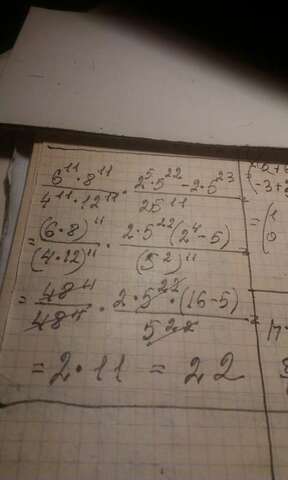 6¹¹·8¹¹ / 4¹¹·12¹¹ · 2⁵·5²²-2·5²³ / 25¹¹ =
= (6·8)¹¹ / (4·12)¹¹ · 2·5²²(2⁴-5) / (5²)¹¹ =
= 48¹¹ / 48¹¹ · 2·5²²·(16-5) / 5²² =
= 2·11 = 22